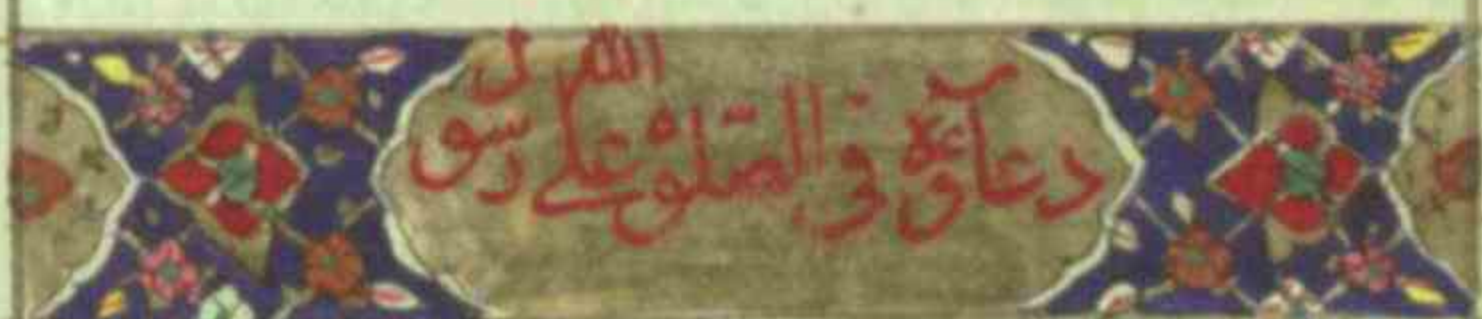 دعاؤه فی الصلوة علی رسول الله